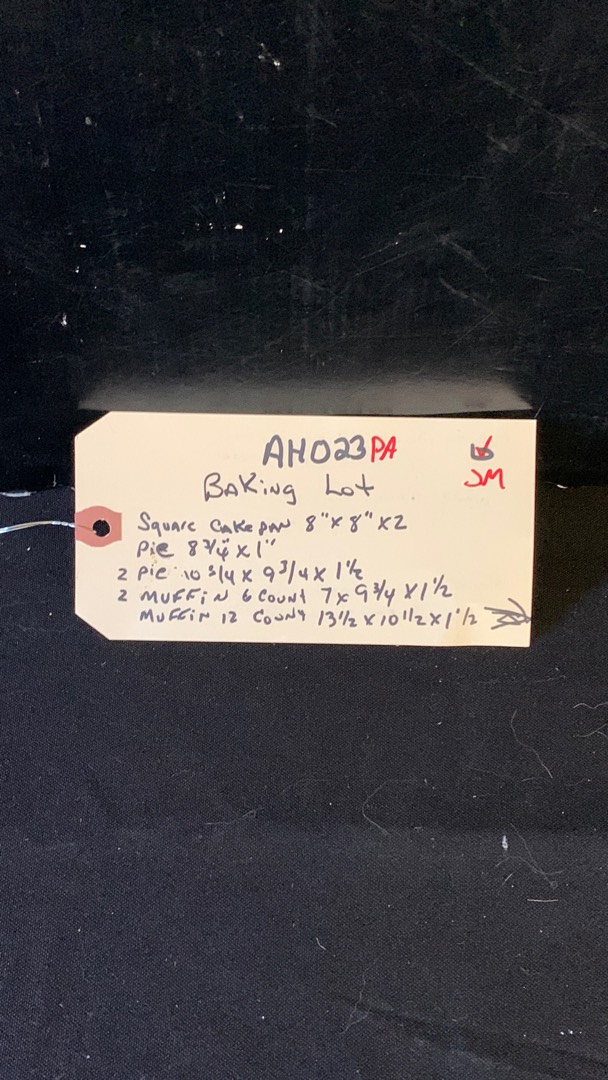 AH023PA
JM
Baking Lot
Square cake pan 8"x 8" x2
Pie 8 3/4" x 1"
2 Pie 10 3/4 x 9 3/4 x 1 1/2
2 MUFFiN 6 Count 7 x 9 3/4 x 1 1/2
MUFFiN 12 Count 13 1/2 x 10 1/2 x 1 1/2